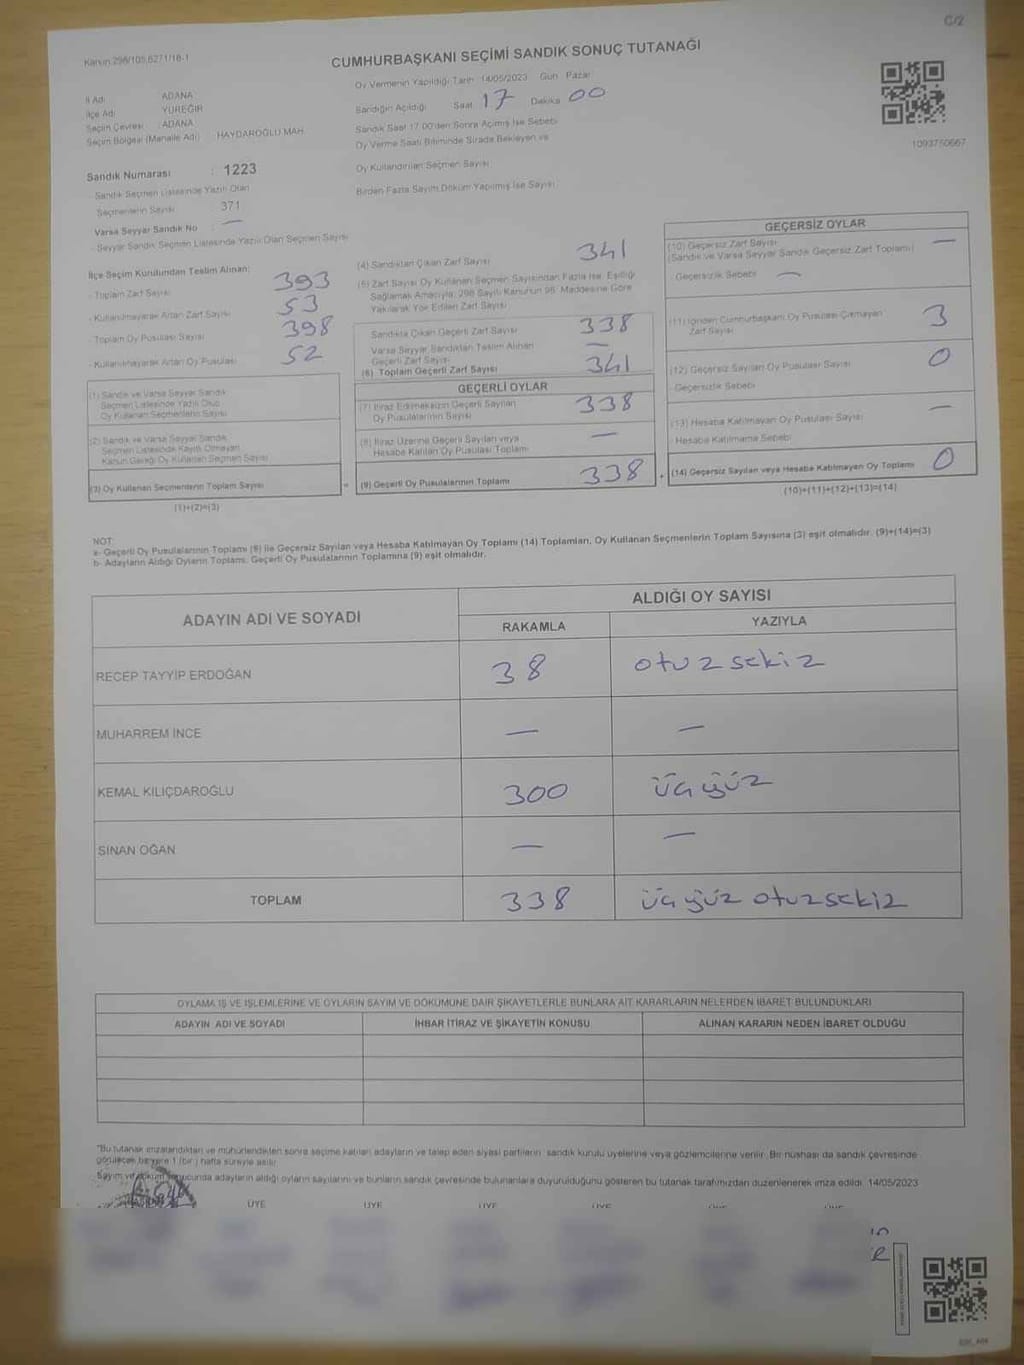 C/2
Kanun 298/105,6271/18-1
CUMHURBAŞKANI SEÇİMİ SANDIK SONUÇ TUTANAĞI
Oy Vermenin Yapıldığı Tarih 14/05/2023 Gün Pazar
İl Adı ADANA
İlçe Adı YÜREĞİR
Seçim Çevresi : ADANA
Seçim Bölgesi (Mahalle Adı) : HAYDAROĞLU MAH.
Sandığın Açıldığı Saat 17 Dakika 00
Sandık Saat 17.00'den Sonra Açılmış İse Sebebi
Oy Verme Saati Bitiminde Sırada Bekleyen ve
Oy Kullandırılan Seçmen Sayısı
Birden Fazla Sayım Döküm Yapılmış İse Sayısı
1093750667
Sandık Numarası : 1223
- Sandık Seçmen Listesinde Yazılı Olan
Seçmenlerin Sayısı 371
Varsa Seyyar Sandık No : —
- Seyyar Sandık Seçmen Listesinde Yazılı Olan Seçmen Sayısı
İlçe Seçim Kurulundan Teslim Alınan:
- Toplam Zarf Sayısı 393
- Kullanılmayarak Artan Zarf Sayısı 53
- Toplam Oy Pusulası Sayısı 398
- Kullanılmayarak Artan Oy Pusulası 52
(1) Sandık ve Varsa Seyyar Sandık
Seçmen Listesinde Yazılı Olup
Oy Kullanan Seçmenlerin Sayısı
(2) Sandık ve Varsa Seyyar Sandık
Seçmen Listesinde Kayıtlı Olmayan
Kanun Gereği Oy Kullanan Seçmen Sayısı
(3) Oy Kullanan Seçmenlerin Toplam Sayısı =
(1)+(2)=(3)
(4) Sandıktan Çıkan Zarf Sayısı 341
(5) Zarf Sayısı Oy Kullanan Seçmen Sayısından Fazla İse, Eşitliği
Sağlamak Amacıyla, 298 Sayılı Kanunun 98. Maddesine Göre
Yakılarak Yok Edilen Zarf Sayısı
Sandıkta Çıkan Geçerli Zarf Sayısı 338
Varsa Seyyar Sandıktan Teslim Alınan
Geçerli Zarf Sayısı —
(6) Toplam Geçerli Zarf Sayısı 341
GEÇERLİ OYLAR
(7) İtiraz Edilmeksizin Geçerli Sayılan
Oy Pusulalarının Sayısı 338
(8) İtiraz Üzerine Geçerli Sayılan veya
Hesaba Katılan Oy Pusulası Toplamı —
(9) Geçerli Oy Pusulalarının Toplamı 338 +
GEÇERSİZ OYLAR
(10) Geçersiz Zarf Sayısı
(Sandık ve Varsa Seyyar Sandık Geçersiz Zarf Toplamı) —
Geçersizlik Sebebi —
(11) İçinden Cumhurbaşkanı Oy Pusulası Çıkmayan
Zarf Sayısı 3
(12) Geçersiz Sayılan Oy Pusulası Sayısı 0
Geçersizlik Sebebi
(13) Hesaba Katılmayan Oy Pusulası Sayısı —
Hesaba Katılmama Sebebi
(14) Geçersiz Sayılan veya Hesaba Katılmayan Oy Toplamı 0
(10)+(11)+(12)+(13)=(14)
NOT:
a- Geçerli Oy Pusulalarının Toplamı (9) ile Geçersiz Sayılan veya Hesaba Katılmayan Oy Toplamı (14) Toplamları, Oy Kullanan Seçmenlerin Toplam Sayısına (3) eşit olmalıdır. (9)+(14)=(3)
b- Adayların Aldığı Oyların Toplamı, Geçerli Oy Pusulalarının Toplamına (9) eşit olmalıdır.
ADAYIN ADI VE SOYADI
ALDIĞI OY SAYISI
RAKAMLA YAZIYLA
RECEP TAYYİP ERDOĞAN 38 otuzsekiz
MUHARREM İNCE — —
KEMAL KILIÇDAROĞLU 300 üçyüz
SİNAN OĞAN — —
TOPLAM 338 üçyüz otuzsekiz
OYLAMA İŞ VE İŞLEMLERİNE VE OYLARIN SAYIM VE DÖKÜMÜNE DAİR ŞİKAYETLERLE BUNLARA AİT KARARLARIN NELERDEN İBARET BULUNDUKLARI
ADAYIN ADI VE SOYADI İHBAR İTİRAZ VE ŞİKAYETİN KONUSU ALINAN KARARIN NEDEN İBARET OLDUĞU
*Bu tutanak imzalandıktan ve mühürlendikten sonra seçime katılan adayların ve talep eden siyasi partilerin sandık kurulu üyelerine veya gözlemcilerine verilir. Bir nüshası da sandık çevresinde
görülecek bir yere 1 (bir) hafta süreyle asılır.
Sayım ve döküm sonucunda adayların aldığı oyların sayılarını ve bunların sandık çevresinde bulunanlara duyurulduğunu gösteren bu tutanak tarafımızdan düzenlenerek imza edildi. 14/05/2023
ÜYE ÜYE ÜYE ÜYE